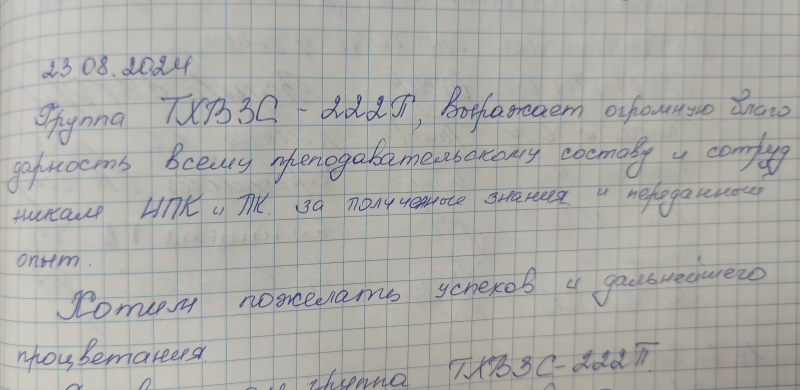 23 08. 2024
Группа ТХВЗС - 222П, выражает огромную благо
дарность всему преподавательскому составу и сотруд
никам ЦПК и ПК. за полученные знания и переданный
опыт.
Хотим пожелать успехов и дальнейшего
процветания
группа ТХВЗС-222П.